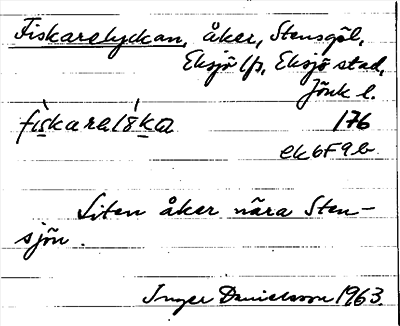 Fiskarelyckan, åker, Stensgöl,
Eksjö lfs, Eksjö stad,
Jönk l.
fìskarelŏ́ka 176
ek 6F 9b
Liten åker nära Sten-
sjön.
Inger Danielsson 1963.